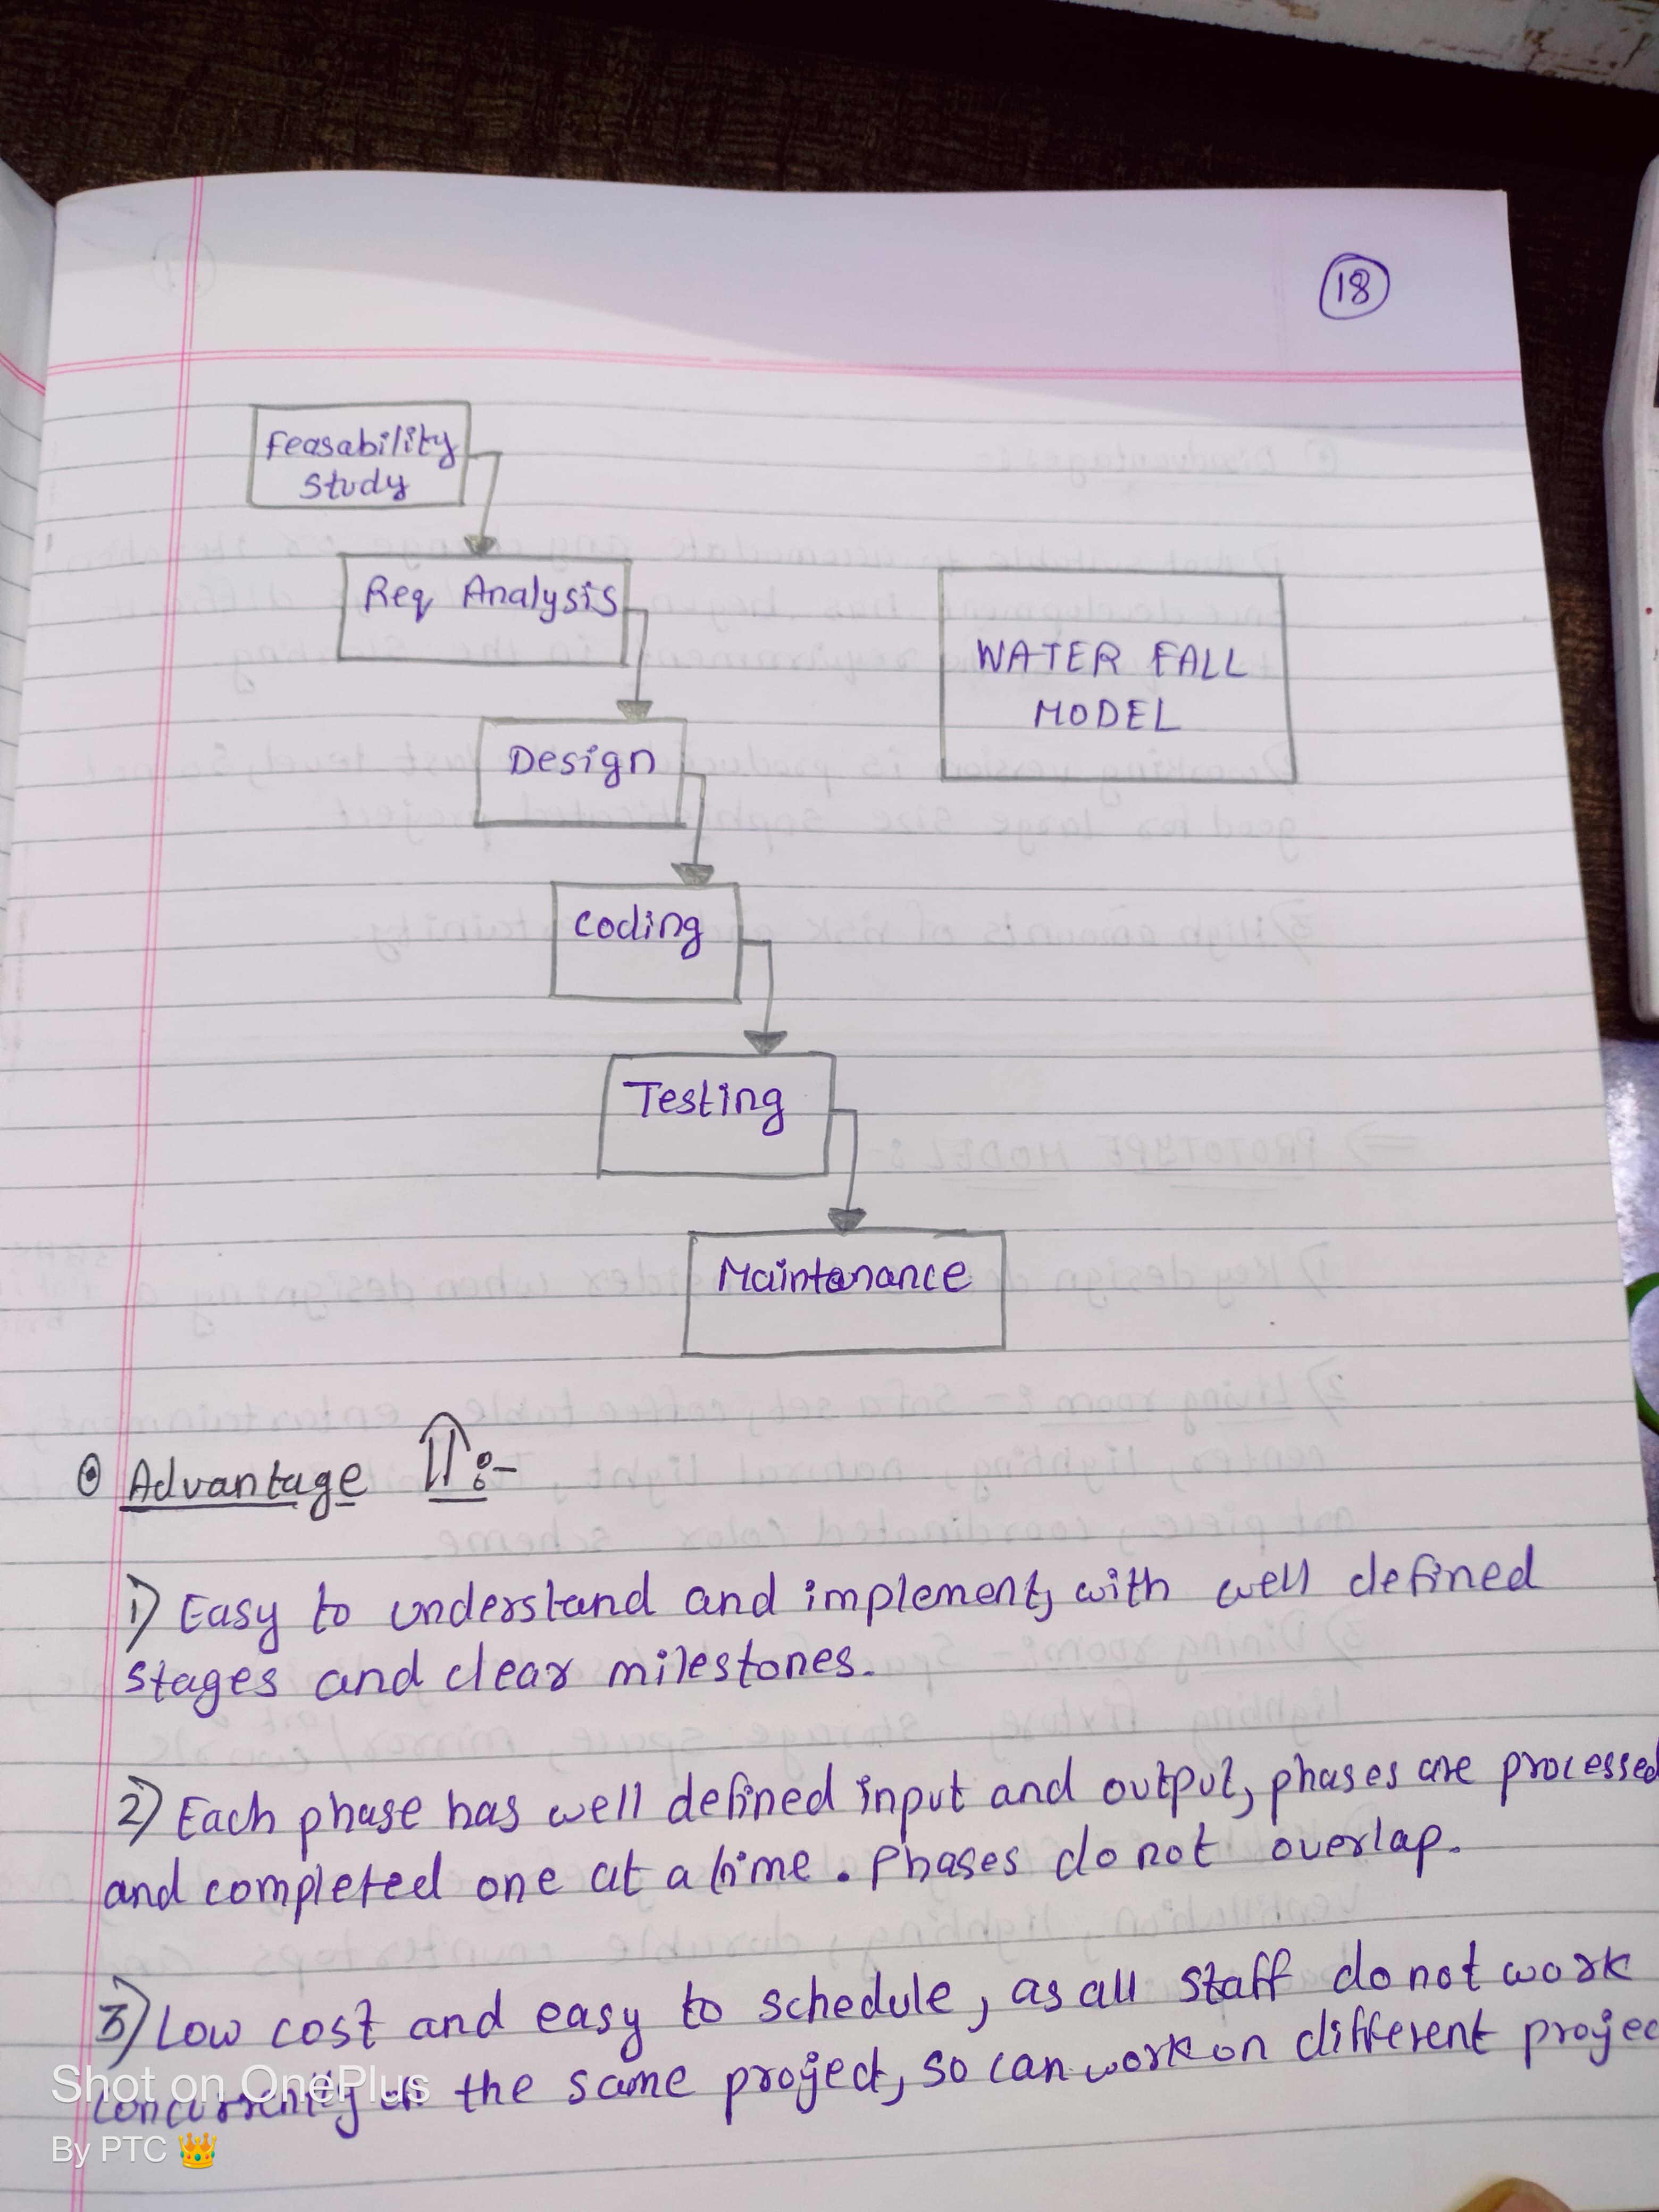 18
Feasability
Study
Req Analysis
WATER FALL
MODEL
Design
Coding
Testing
Maintenance
Advantage :-
1) Easy to understand and implement, with well defined
stages and clear milestones.
2) Each phase has well defined input and output, phases are processed
and completed one at a time. Phases do not overlap.
3) Low cost and easy to schedule, as all staff do not work
concurrently on the same project, so can work on different projec
Shot on OnePlus
By PTC 👑